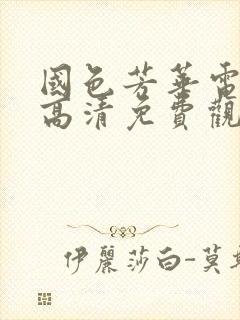 國色芳華電
高清免費觀
伊麗莎白-莫